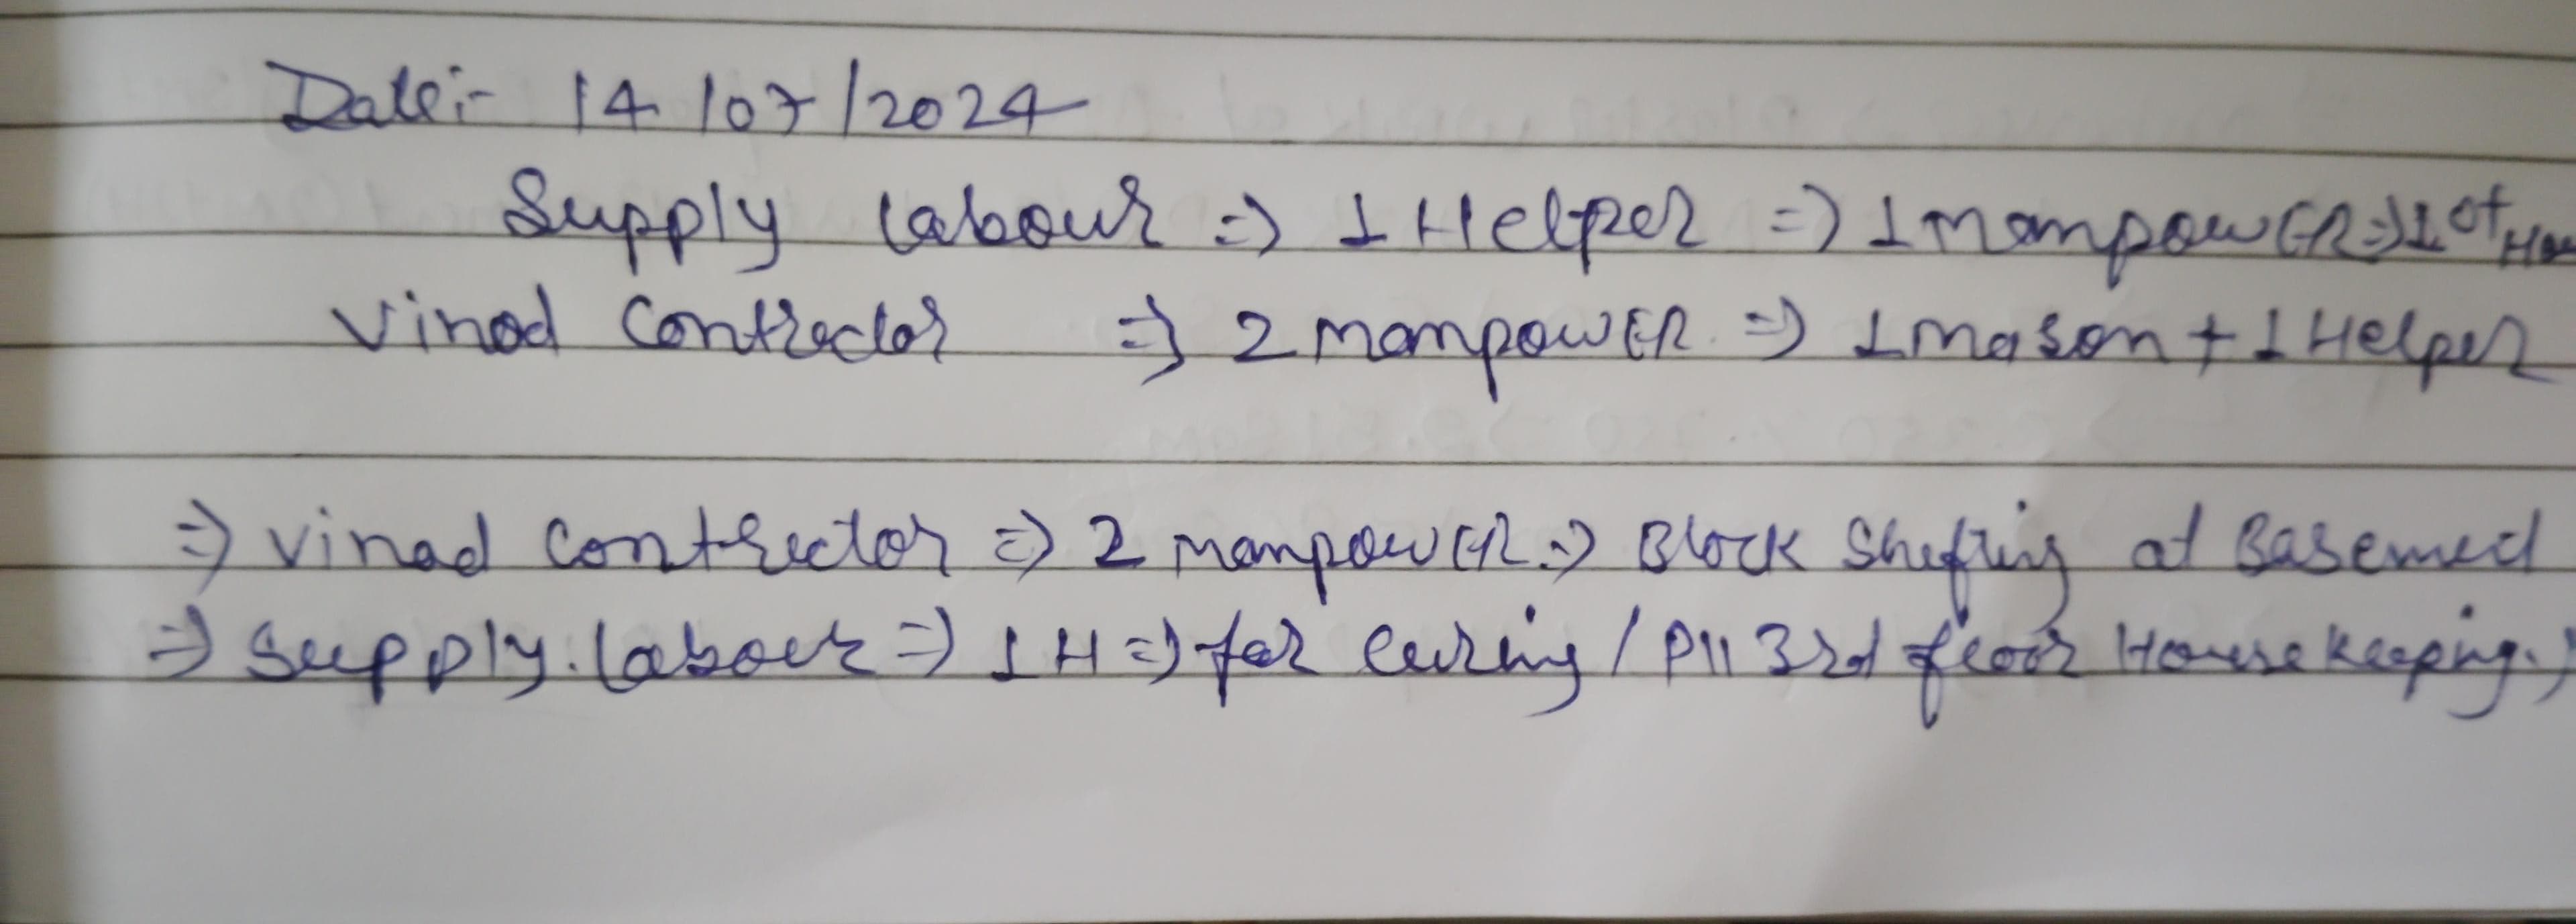 Date:- 14/07/2024
Supply labour => 1 Helper => 1 manpowER => 1 ot
Vinod Contractor => 2 manpowER. => 1 mason + 1 Helper
=> Vinod contractor => 2 manpowER => Block Shifting at Basement
=> Supply. labour => 1 H => for curing / P11 3rd floor House keeping.)